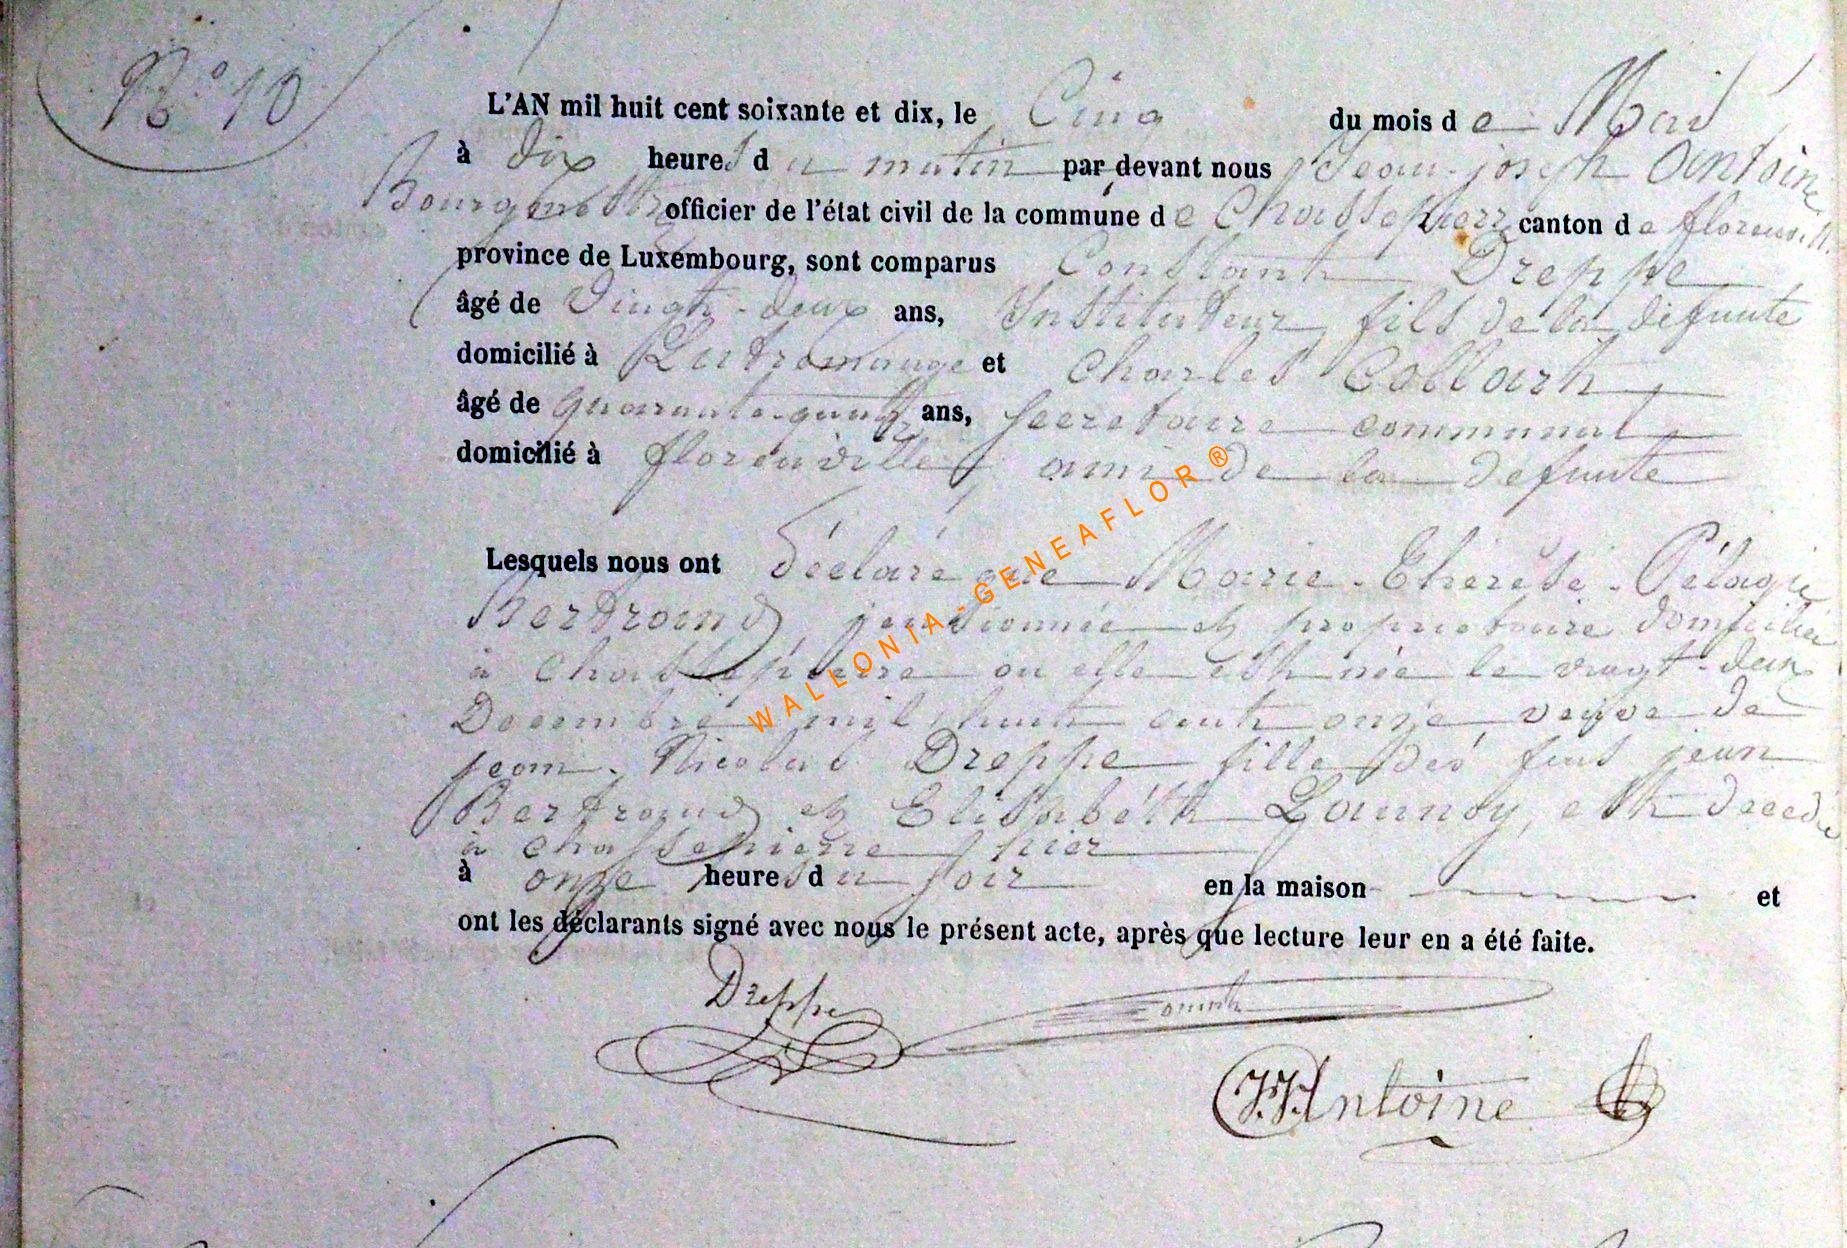 N° 10
L'AN mil huit cent soixante et dix, le Cinq du mois de Mai
à dix heures du matin par devant nous Jean-joseph Antoine
Bourgmestre officier de l'état civil de la commune de Chassepierre canton de florenville
province de Luxembourg, sont comparus Constant Dreppe
âgé de Vingt-deux ans, Instituteur, fils de la défunte
domicilié à Lutremange et Charles Collart
âgé de quarante-quatre ans, Secretaire communal
domicilié à florenville, ami de la défunte
Lesquels nous ont déclaré que Marie-Thérèse-Pélagie
Bertrand, pensionnée et propriétaire domiciliée
à Chassepierre ou elle est née le vingt-deux
Decembre mil huit cent onze veuve de
jean-Nicolas Dreppe fille des feus jean
Bertrand et Elisabeth Launoy, est décédée
à chassepierre hier
à onze heures du soir en la maison et
ont les déclarants signé avec nous le présent acte, après que lecture leur en a été faite.
Dreppe
J.J. Antoine
WALLONIA-GENEAFLOR ®